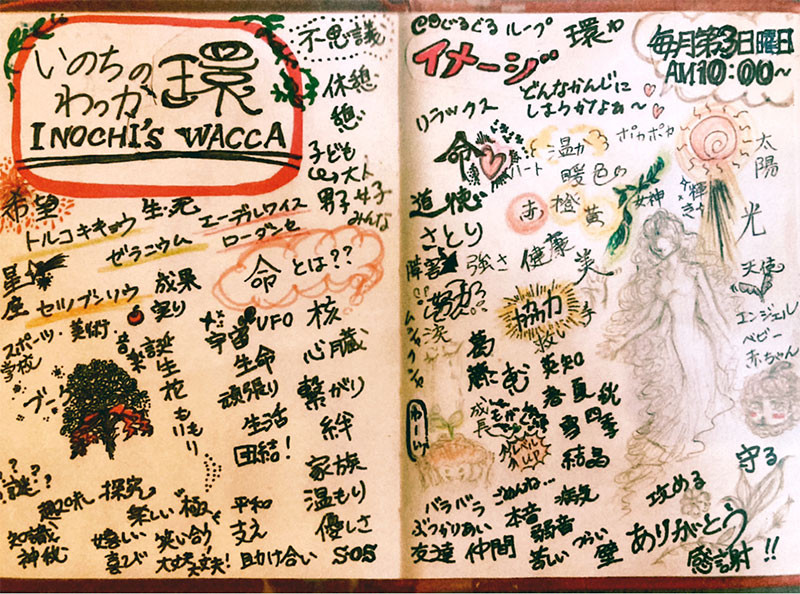 いのちの
わっか 環
INOCHI's WACCA
不思議
休憩
憩い
子ども
大人
男子 女子
みんな
希望
生・死
トルコキキョウ
ゼラニウム
エーデルワイス
ローダンセ
星
座
セツブンソウ
成果
実り
命とは??
スポーツ・美術・
音楽
学校
誕
生
花
もりもり
ブーケ
宇宙
UFO
生命
頑張り
生活
団結!
核
心臓
繋がり
絆
家族
温もり
優しさ
SOS
謎?
趣味
探究
知識
神秘
楽しい
極
嬉しい
喜び
笑い合う
大丈夫大丈夫!
平和
支え
助け合い
ぐるぐるループ
環わ
イメージ
どんなかんじに
しようかなぁ〜
毎月第3日曜日
AM10:00〜
リラックス
命
ハート
温か
ポカポカ
暖色の
赤 橙 黄
道徳
さとり
女神
輝き
太陽
光
障害
強さ
健康
美
努力
涙
ムシャクシャ
協力
救い手
天使
エンジェル
ベビー
赤ちゃん
葛
藤
英知
春夏秋
雪 四季
結晶
成長
レベル
UP
守る
攻める
バラバラ
ごめんね…
病気
ぶつかりあい
本音
弱音
つらい
友達 仲間
苦しい
壁
ありがとう
感謝!!